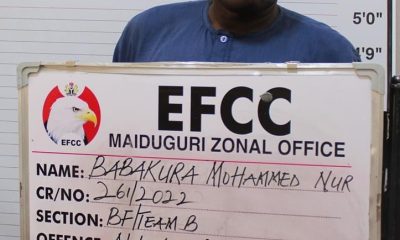 5'0"
4'9"
EFCC
EFCC
MAIDUGURI ZONAL OFFICE
NAME: BABAKURA MOHAMMED NUR
CR/NO: 261/2022
SECTION: BF/TEAM B
OFFENCE: